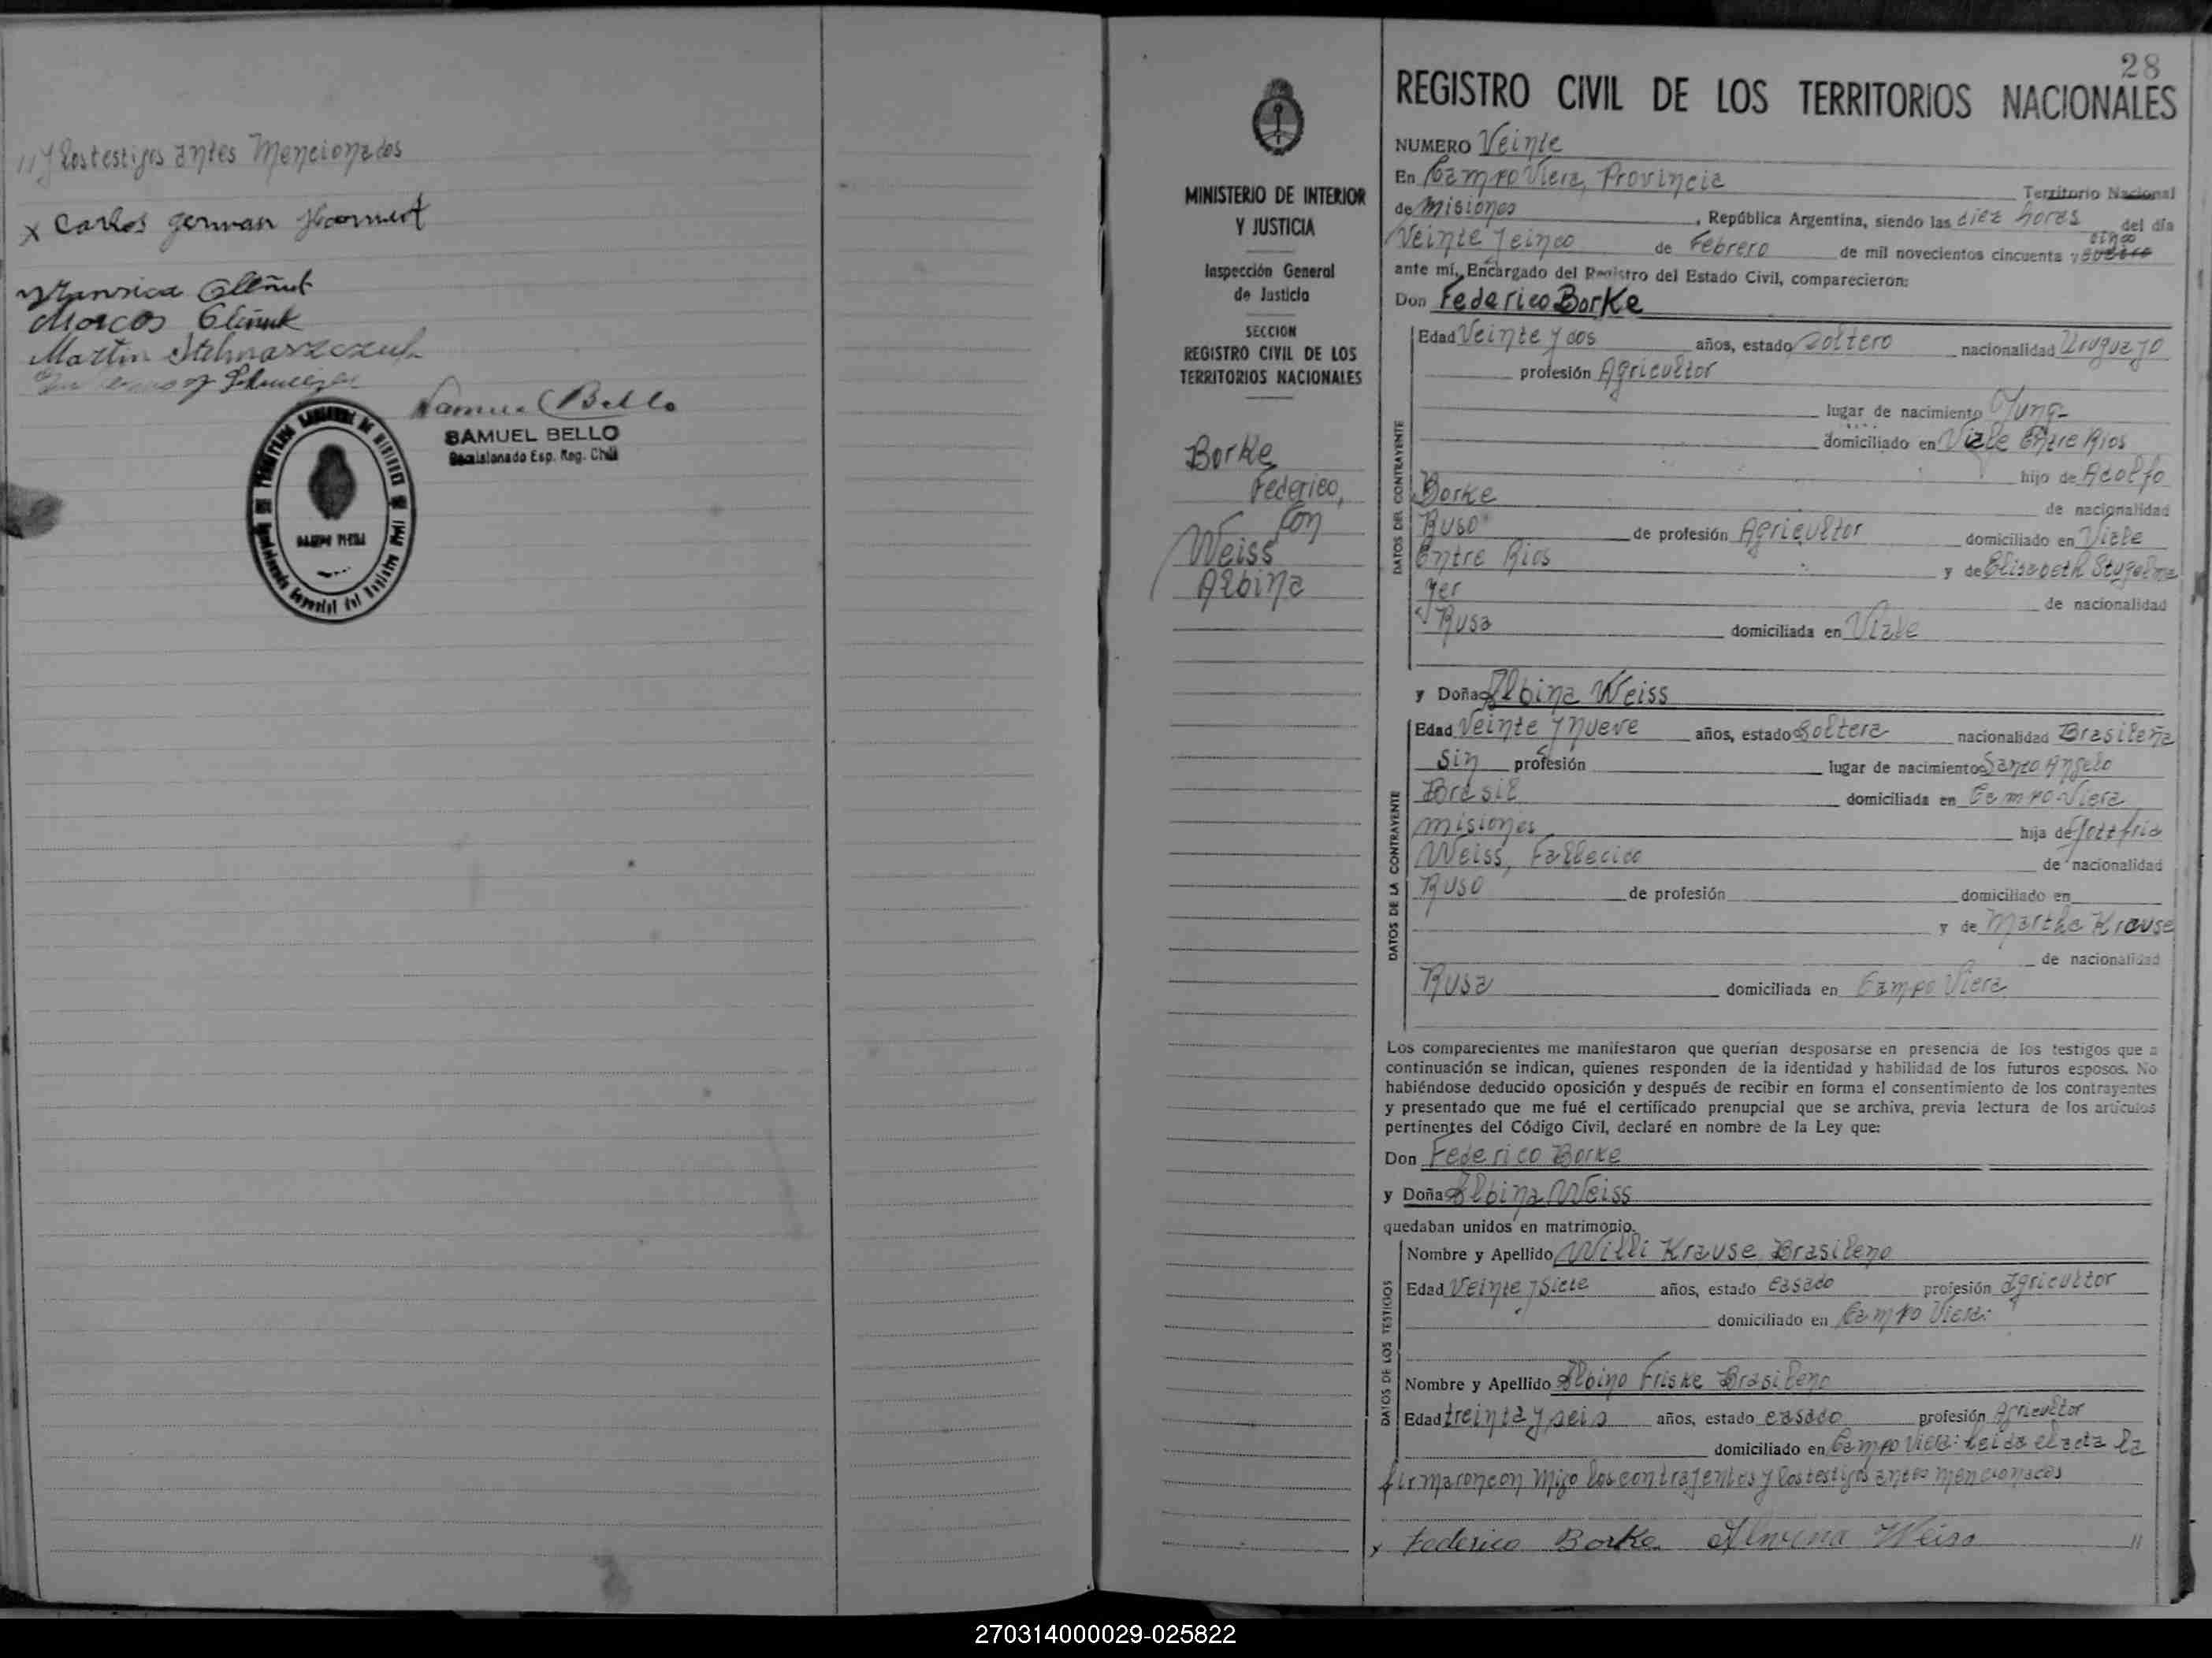 // y los testigos antes Mencionados
x Carlos german
Marcos Oliñuk
Martin
Samuel Bello
SAMUEL BELLO
Comisionado Esp. Reg. Civil
CAMPO VIERA
MINISTERIO DE INTERIOR
Y JUSTICIA
Inspección General
de Justicia
SECCION
REGISTRO CIVIL DE LOS
TERRITORIOS NACIONALES
Borke
Federico,
Con
Weiss
Albina
28
REGISTRO CIVIL DE LOS TERRITORIOS NACIONALES
NUMERO Veinte
En Campo Viera, Provincia Territorio Nacional
de Misiones, República Argentina, siendo las diez horas del día
cinco
Veinte y cinco de Febrero de mil novecientos cincuenta y cuatro
ante mí, Encargado del Registro del Estado Civil, comparecieron:
Don Federico Borke
DATOS DEL CONTRAYENTE
Edad Veinte y dos años, estado Soltero nacionalidad Uruguayo
profesión Agricultor
lugar de nacimiento Yung-
domiciliado en Viale Entre Rios
hijo de Adolfo
Borke de nacionalidad
Ruso de profesión Agricultor domiciliado en Viale
Entre Rios y de Elisabeth
ger de nacionalidad
Rusa domiciliada en Viale
y Doña Albina Weiss
DATOS DE LA CONTRAYENTE
Edad Veinte y nueve años, estado Soltera nacionalidad Brasileña
Sin profesión lugar de nacimiento Santo Angelo
Brasil domiciliada en Campo-Viera
Misiones hija de Gottfrid
Weiss, Fallecido de nacionalidad
Ruso de profesión domiciliado en
y de Martha Krause
de nacionalidad
Rusa domiciliada en Campo Viera
Los comparecientes me manifestaron que querían desposarse en presencia de los testigos que a
continuación se indican, quienes responden de la identidad y habilidad de los futuros esposos. No
habiéndose deducido oposición y después de recibir en forma el consentimiento de los contrayentes
y presentado que me fué el certificado prenupcial que se archiva, previa lectura de los artículos
pertinentes del Código Civil, declaré en nombre de la Ley que:
Don Federico Borke
y Doña Albina Weiss
quedaban unidos en matrimonio.
DATOS DE LOS TESTIGOS
Nombre y Apellido Willi Krause, Brasileno
Edad Veinte y Siete años, estado Casado profesión agricultor
domiciliado en Campo Viera:
Nombre y Apellido Albino Friske Brasileno
Edad treinta y seis años, estado casado profesión Agricultor
domiciliado en Campo Viera: Leida el acta la
firmaron con migo los contrayentes y los testigos antes mencionados
x Federico Borke Alwina Weiss //
270314000029-025822